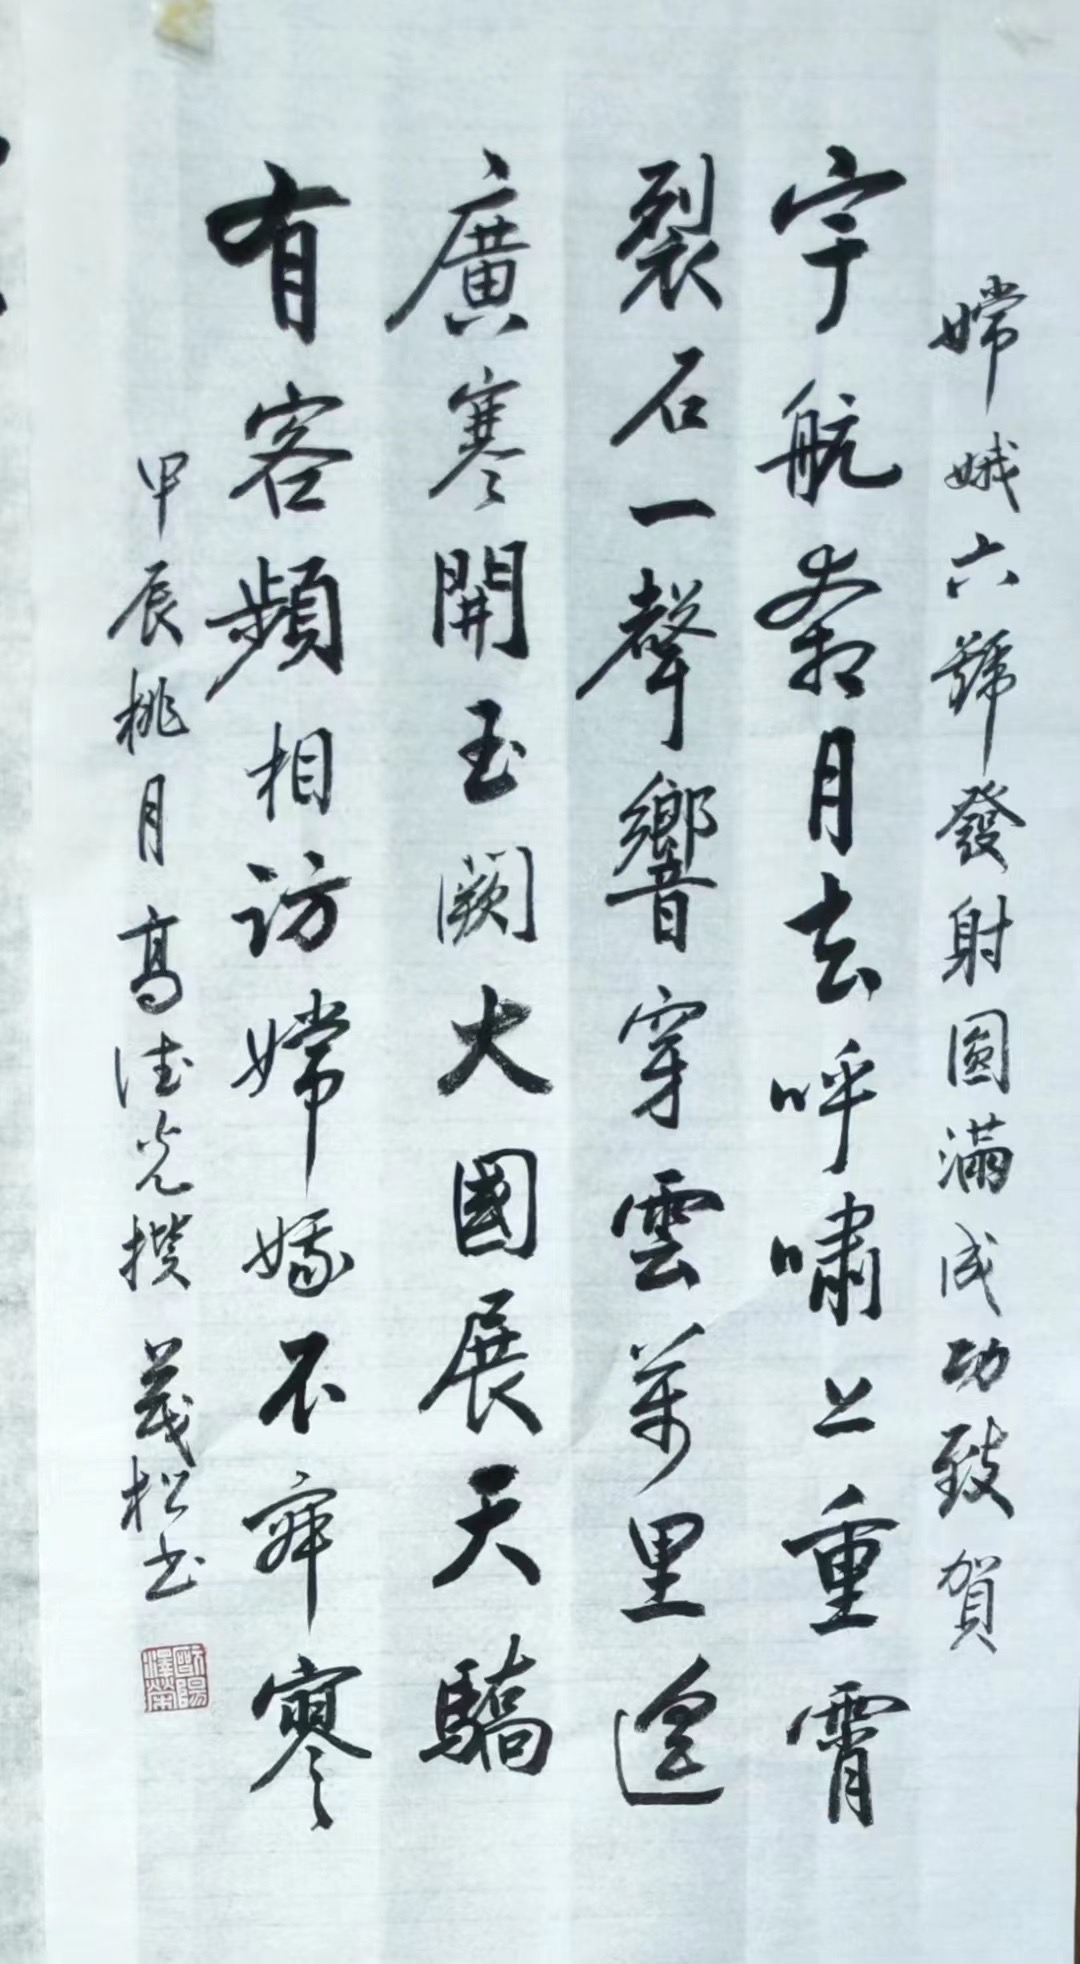 嫦娥六號發射圓滿成功致賀
宇航奔月去呼嘯上重霄
裂石一聲響穿雲萬里遙
廣寒開玉闕大國展天驕
有客頻相訪嫦娥不寂寥
甲辰桃月高德光撰 義松书
歐陽澤